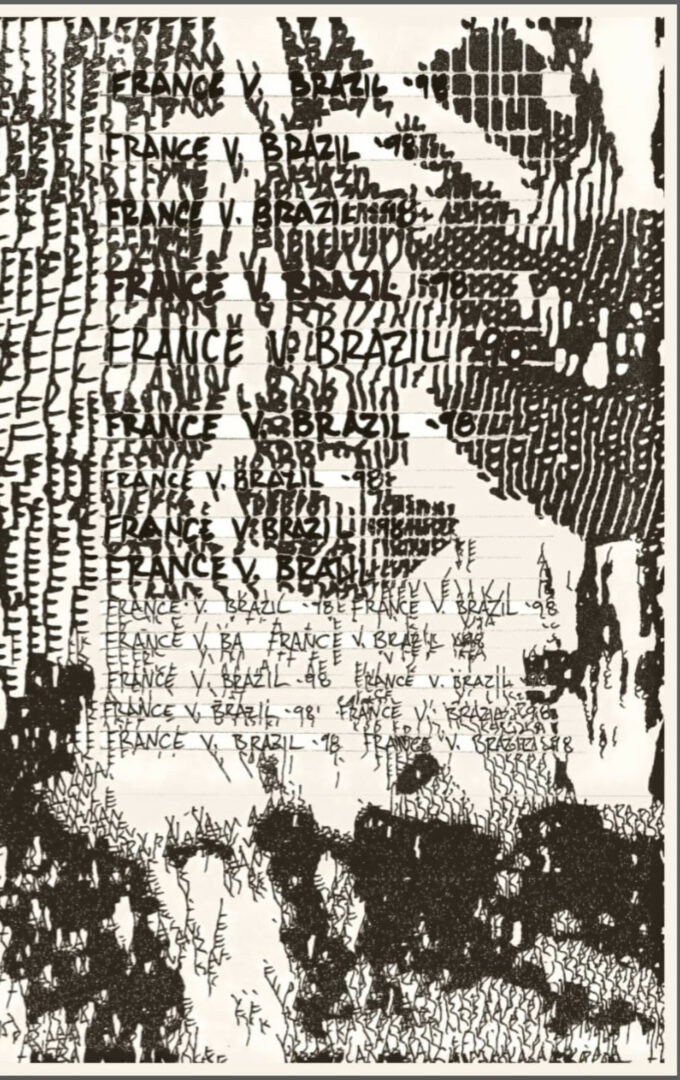 FRANCE V. BRAZIL '98
FRANCE V. BRAZIL '98
FRANCE V. BRAZIL '98
FRANCE V. BRAZIL '98
FRANCE V. BRAZIL '98
FRANCE V. BRAZIL '98
FRANCE V. BRAZIL '98
FRANCE V. BRAZIL '98
FRANCE V.
FRANCE V. BRAZIL '98 FRANCE V. BRAZIL '98
FRANCE V. BA FRANCE V. BRAZIL '98
FRANCE V. BRAZIL '98 FRANCE V. BRAZIL '98
FRANCE V. BRAZIL '98 FRANCE V. BRAZIL '98
FRANCE V. BRAZIL '98 FRANCE V. BRAZIL '98